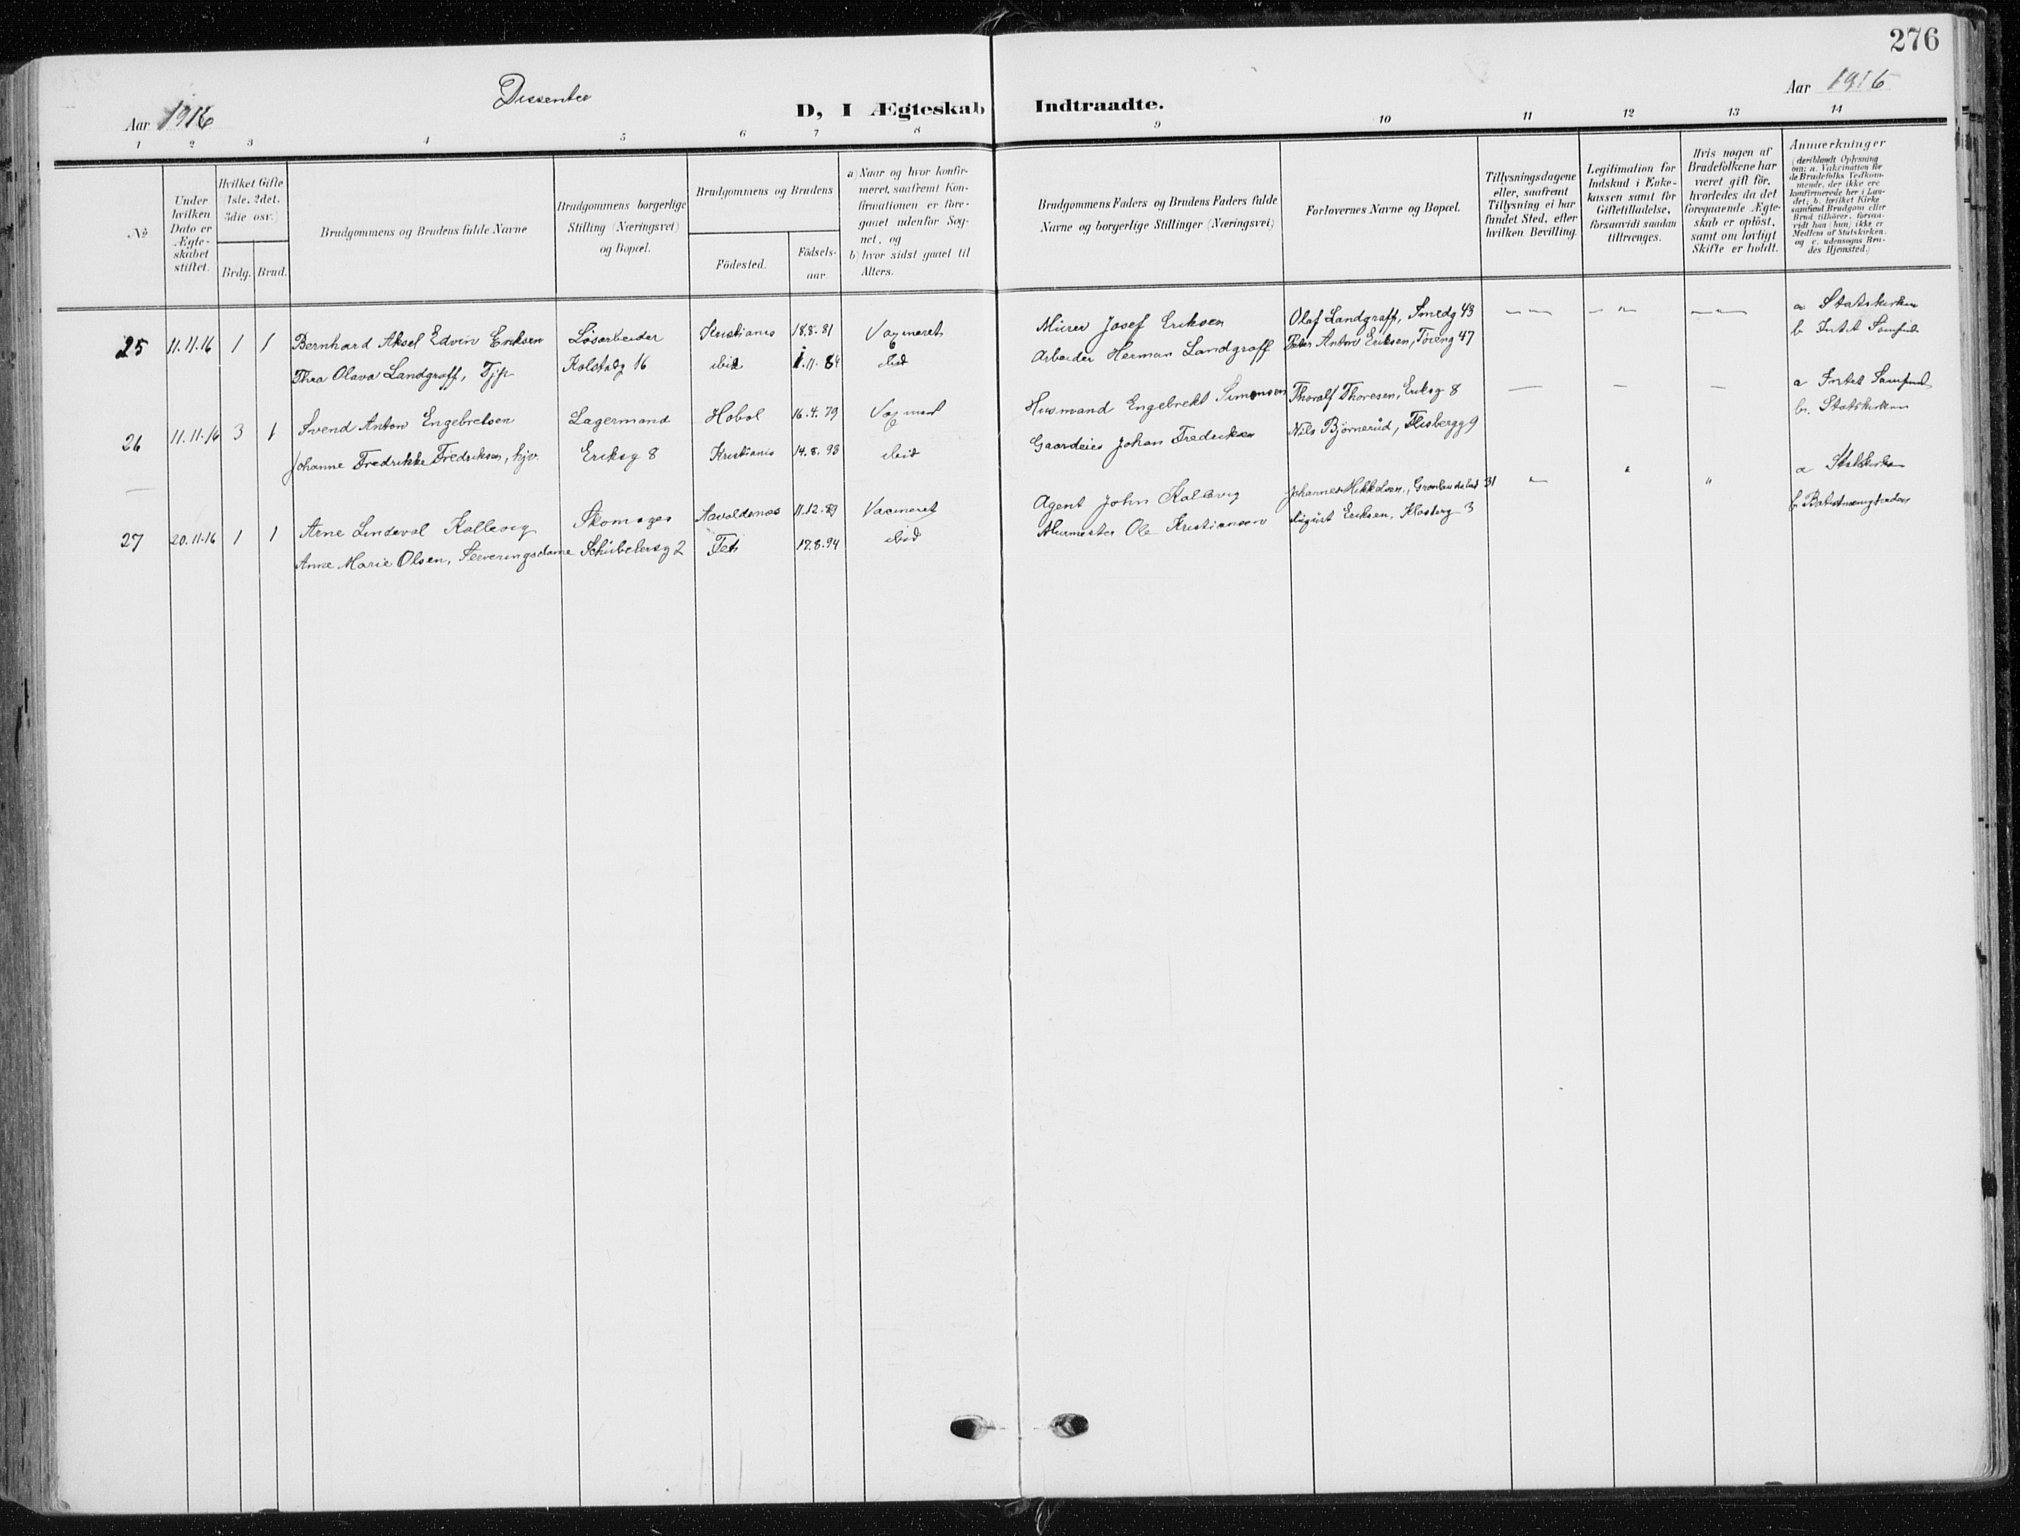 276
Dissenter
Aar 1916
D, I Ægteskab Indtraadte.
Aar 1916
1 2 3 4 5 6 7 8 9 10 11 12 13 14
No
Under hvilken Dato er Ægteskabet stiftet.
Hvilket Gifte 1ste, 2det, 3die osv.)
Brdg. Brud.
Brudgommens og Brudens fulde Navne
Brudgommens borgerlige Stilling (Næringsvei) og Bopæl.
Brudgommens og Brudens
Födested.
Födsels-aar.
a) Naar og hvor konfirmeret, saafremt Konfirmationen er foregaaet udenfor Sognet, og
b) hvor sidst gaaet til Alters.
Brudgommens Faders og Brudens Faders fulde Navne og borgerlige Stillinger (Næringsvei)
Forlovernes Navne og Bopæl.
Tillysningsdagene eller, saafremt Tillysning ei har fundet Sted, efter hvilken Bevilling.
Legitimation for Indskud i Enkekassen samt for Giftetilladelse, forsaavidt saadan tiltrænges.
Hvis nogen af Brudefolkene har været gift för, hvorledes da det foregaaende Ægteskab er oplöst, samt om lovligt Skifte er holdt.
Anmærkninger
(deriblandt Oplysning om: a. Vakcination for de Brudefolks Vedkommende, der ikke ere konfirmerede her i Landet; b. hvilket Kirkesamfund Brudgom eller Brud tilhörer, forsaavidt han (hun) ikke er Medlem af Statskirken, og c. udensogns Brudes Hjemsted.)
25 11.11.16 1 1 Bernhard Aksel Edvin Eriksen Løsarbeider Kristiania 18.8.81 Vaxineret Murer Josef Eriksen Olaf Landgraff, Smedg 43 a Statskirken
Thea Olava Landgraff, Tjp Kolstadg 16 ibid 1.11.84 ibid Arbeider Herman Landgraff Peter Anton Eriksen, Tøieng 47 b Intet Samfund
26 11.11.16 3 1 Svend Anton Engebretsen Lagermand Hobøl 16.4.79 Husmand Engebrekt Simonsen Thoralf Thoresen, Eriksg 8 a Intet Samfund
Johanne Fredrikke Fredriksen, hjv. Eriksg 8 Kristiania 14.8.93 ibid Gaardeier Johan Fredriksen Nils Bjørnerud, Flisbergg 9 b. Statskirken
27 20.11.16 1 1 Arne Lindeval Kallevig Skomager 11.12.89 Vaxineret Agent John Kallevig Johannes Mikkelsen, Grønlandsleret 31 a Statskirken
Anne Marie Olsen, Serveringsdame Schübelersg 2 Fet 17.8.94 ibid Murmester Ole Kristiansen August Eriksen, Klosterg 3 b